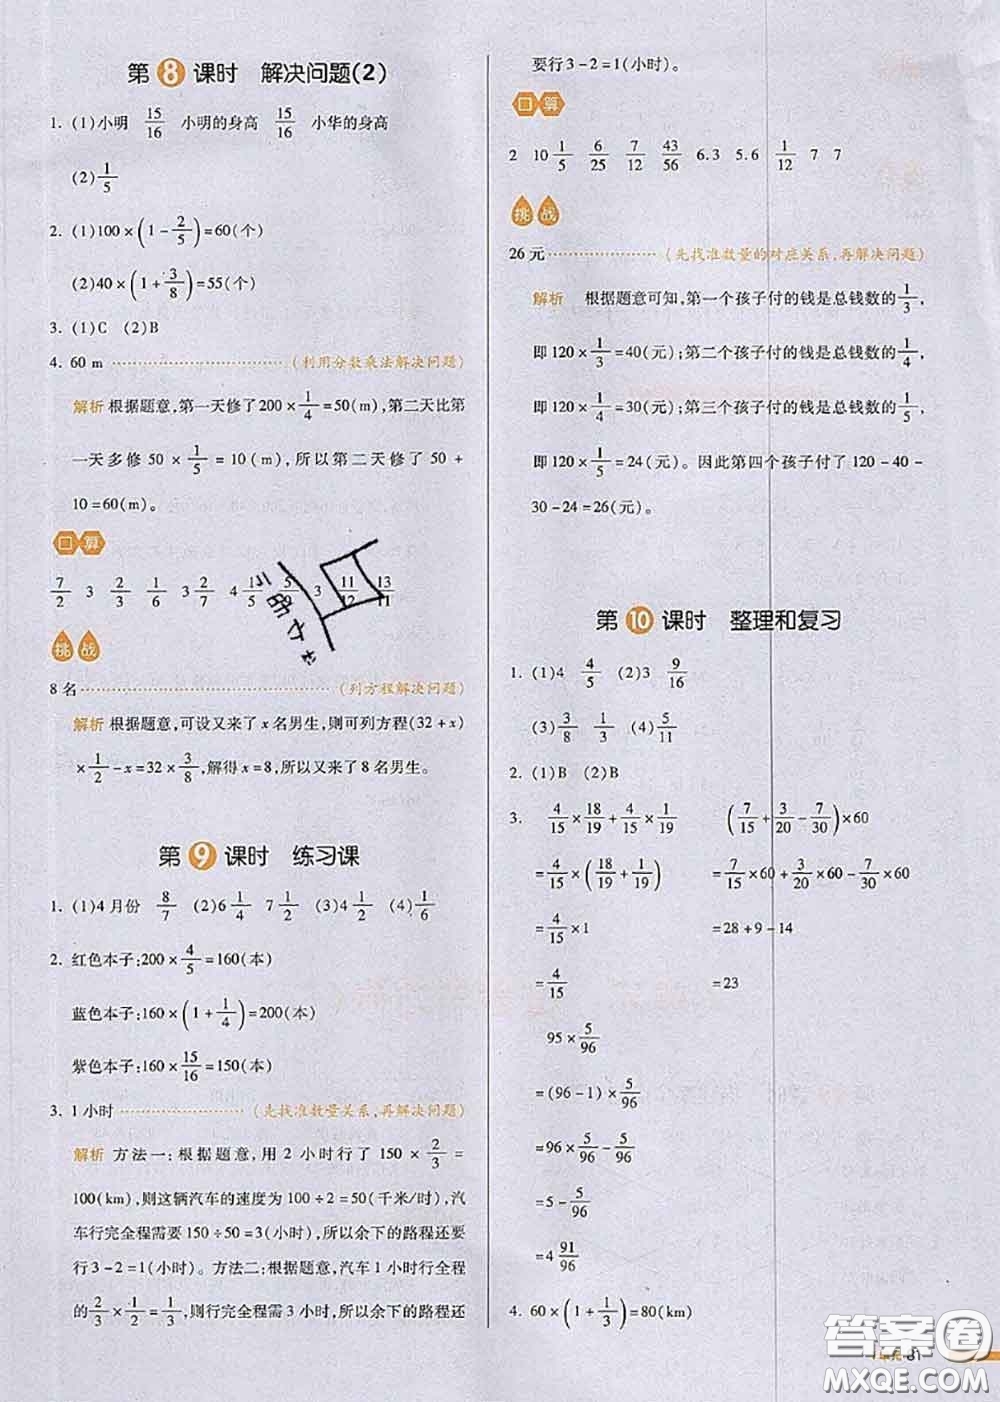 第8课时 解决问题(2)
1. (1)小明 15/16 小明的身高 15/16 小华的身高
(2)1/5
2. (1)100×(1-2/5)=60(个)
(2)40×(1+3/8)=55(个)
3. (1)C (2)B
4. 60 m ……(利用分数乘法解决问题)
解析 根据题意,第一天修了200×1/4=50(m),第二天比第
一天多修 50×1/5=10(m),所以第二天修了 50+
10=60(m)。
口算
7/2 3 2/3 1/6 3 2/7 4 1/5 5/9 3 11/12 13/11
挑战
8名……(列方程解决问题)
解析 根据题意,可设又来了x名男生,则可列方程(32+x)
×1/2-x=32×3/8,解得x=8,所以又来了8名男生。
第9课时 练习课
1. (1)4月份 8/7 (2)6 1/4 7 1/2 (3)4 1/2 (4)1/6
2. 红色本子:200×4/5=160(本)
蓝色本子:160×(1+1/4)=200(本)
紫色本子:160×15/16=150(本)
3. 1小时……(先找准数量关系,再解决问题)
解析 方法一:根据题意,用2小时行了150×2/3=
100(km),则这辆汽车的速度为100÷2=50(千米/时),汽
车行完全程需要150÷50=3(小时),所以余下的路程还要
行3-2=1(小时)。方法二:根据题意,汽车1小时行全程
的2/3×1/2=1/3,则行完全程需3小时,所以余下的路程还
要行3-2=1(小时)。
口算
2 10 1/5 6/25 7/12 43/56 6.3 5.6 1/12 7 7
挑战
26元……(先找准数量的对应关系,再解决问题)
解析 根据题意可知,第一个孩子付的钱是总钱数的1/3,
即120×1/3=40(元);第二个孩子付的钱是总钱数的1/4,
即120×1/4=30(元);第三个孩子付的钱是总钱数的1/5,
即120×1/5=24(元)。因此第四个孩子付了120-40-
30-24=26(元)。
第10课时 整理和复习
1. (1)4 4/5 (2)3 9/16
(3)3/8 1/3 (4)5/11
2. (1)B (2)B
3. 4/15×18/19+4/15×1/19 (7/15+3/20-7/30)×60
=4/15×(18/19+1/19) =7/15×60+3/20×60-7/30×60
=4/15×1 =28+9-14
=4/15 =23
95×5/96
=(96-1)×5/96
=96×5/96-5/96
=5-5/96
=4 91/96
4. 60×(1+1/3)=80(km)
答案圈
MXQE.COM